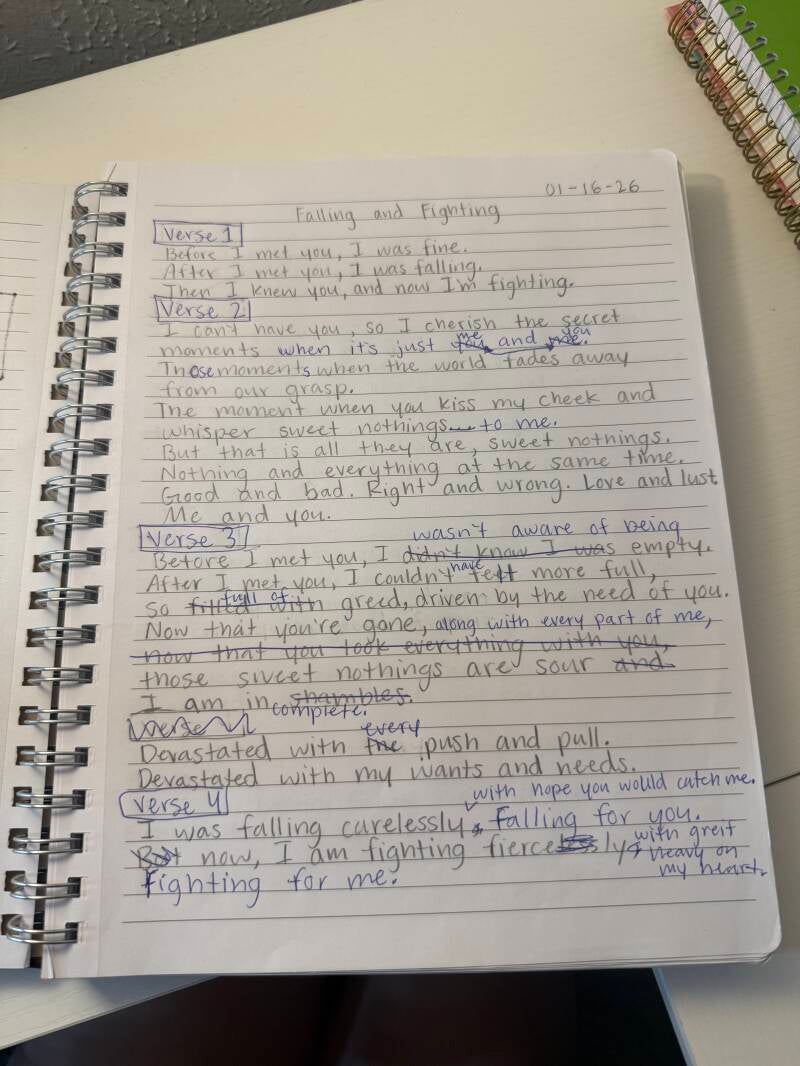 01-16-26
Falling and Fighting
Verse 1
Before I met you, I was fine.
After I met you, I was falling.
Then I knew you, and now I'm fighting.
Verse 2
I can't have you, so I cherish the secret
moments when it's just you me and me you.
Those moments when the world fades away
from our grasp.
The moment when you kiss my cheek and
whisper sweet nothings to me.
But that is all they are, sweet nothings.
Nothing and everything at the same time.
Good and bad. Right and wrong. Love and lust
Me and you.
Verse 3
wasn't aware of being
Before I met you, I didn't know I was empty.
After I met you, I couldn't have felt more full,
full of
so filled with greed, driven by the need of you.
Now that you're gone, along with every part of me,
now that you took everything with you,
those sweet nothings are sour and
I am in shambles.
complete.
Verse 4
every
Devastated with the push and pull.
Devastated with my wants and needs.
Verse 4
with hope you would catch me.
I was falling carelessly, falling for you.
But now, I am fighting fiercely with greif
heavy on
my heart.
Fighting for me.